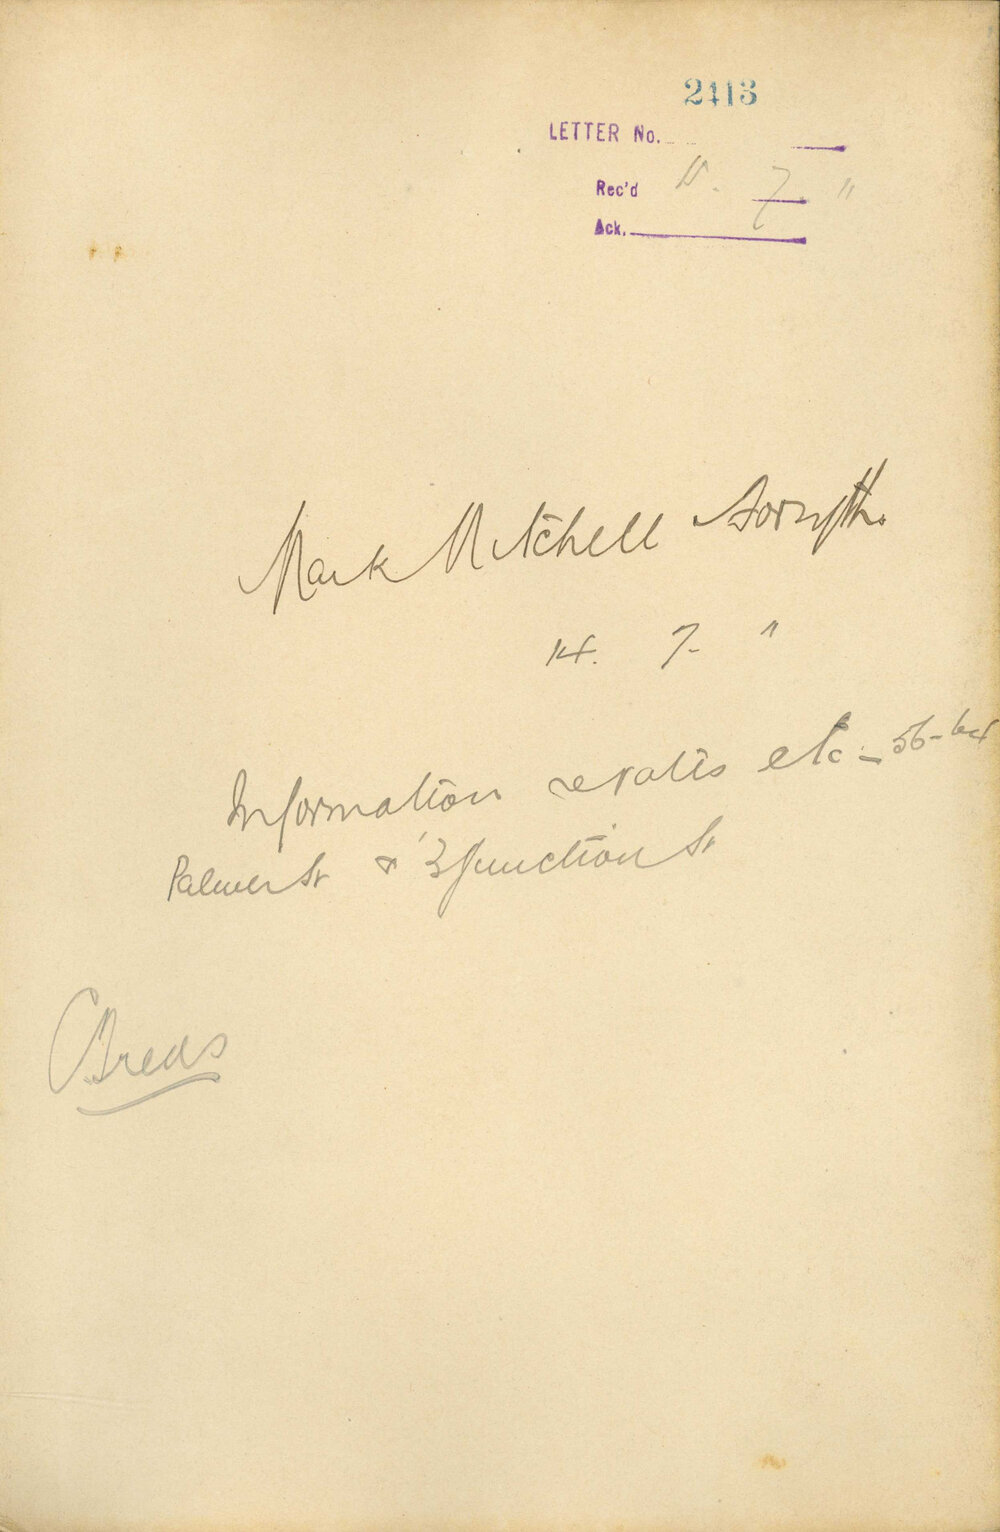 2413
LETTER No.
Rec'd 15. 7. "
Ack.
Mark Mitchell Forsyth.
14. 7. "
Information re rates etc - 56-64
Palmer St & 3 Junction St